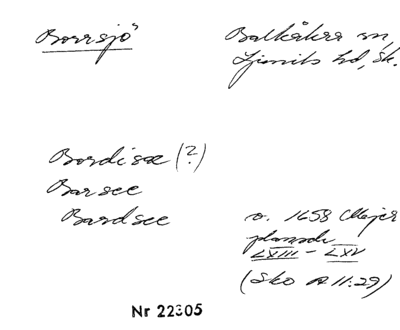 Borrsjö
Balkåkra sn,
Ljunits hd, Sk.
Bordisæ (?)
Barsee
Bardsee
v. 1658 Mejer
plansch
LXIII - LXV
(Sko A II:29)
Nr 22305